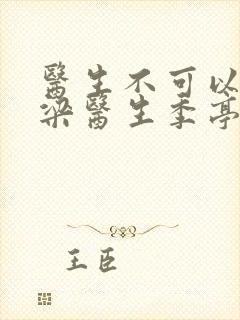 醫生不可以
梁醫生季亭
王臣